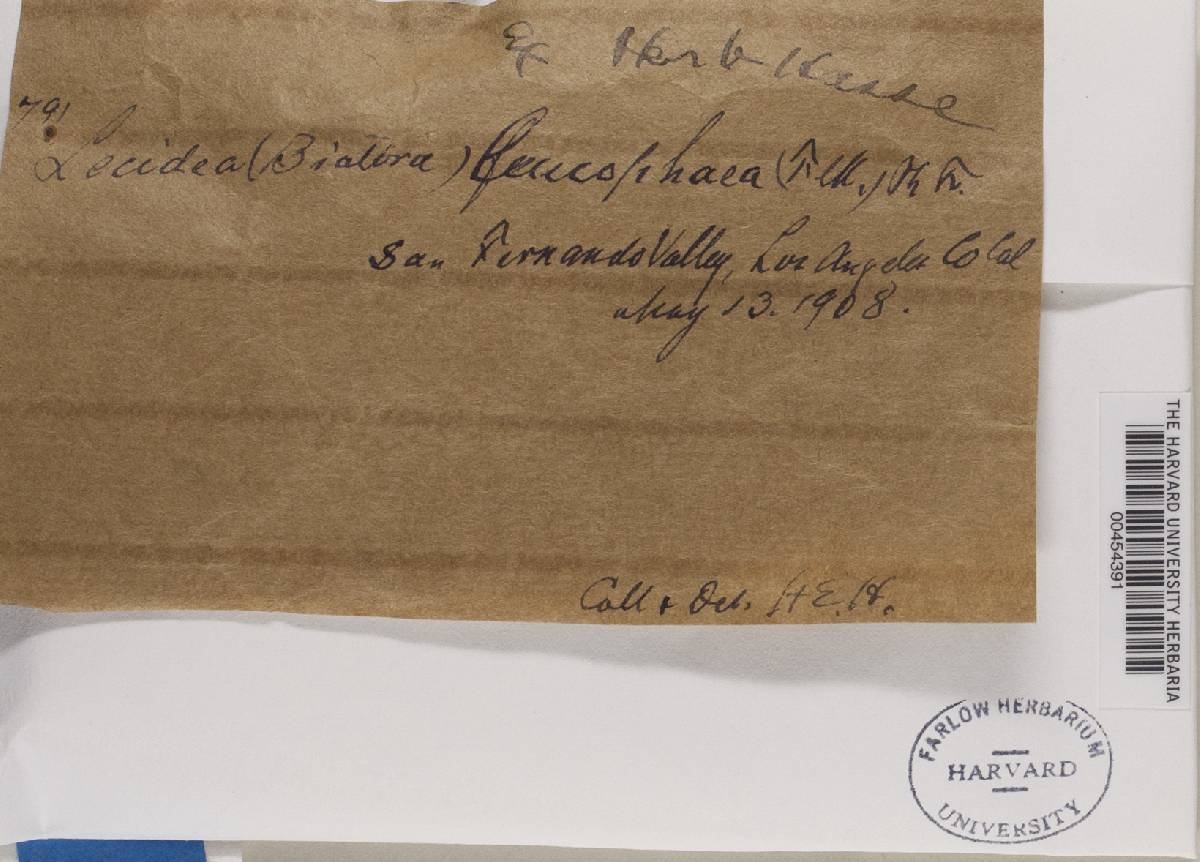 Ex Herb Hasse
791
Lecidea (Biatora) leucophaea (Flk.) Th Fr.
San Fernando Valley, Los Angeles Co Cal
May 13. 1908.
Coll & Det. H.E.H.
THE HARVARD UNIVERSITY HERBARIA
00454391
FARLOW HERBARIUM
HARVARD
UNIVERSITY